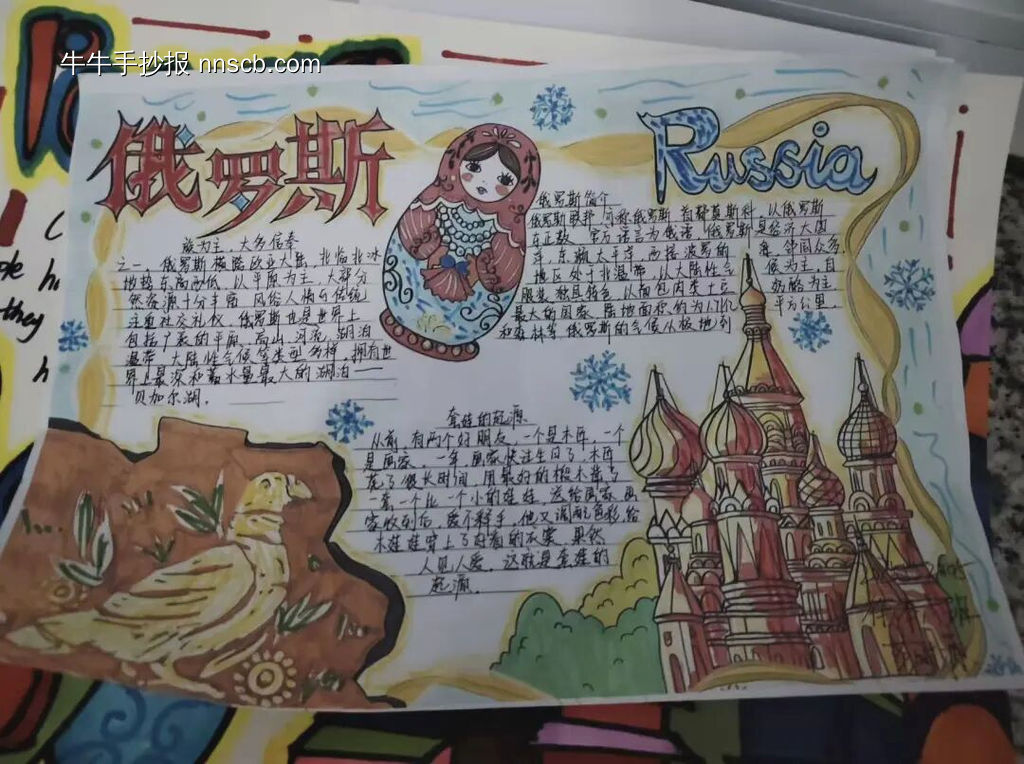 牛牛手抄报 nnscb.com
俄罗斯
Russia
俄罗斯简介
俄罗斯联邦,亦称俄罗斯,首都莫斯科,以俄罗斯
官方语言为俄语,俄罗斯是经济大国
东濒太平洋,西接波罗的海,邻国众多,
地区处于北温带,以大陆性气候为主,
服装独具特色,以面包肉类土豆奶酪为主
最大的国家,陆地面积约为
平方公里,
和森林等,俄罗斯的气候从极地到
族为主,大多信奉
之一,俄罗斯横跨欧亚大陆,北临北冰
地势东高西低,以平原为主,大部分
然资源十分丰富,风俗人情与传统
注重社交礼仪,俄罗斯也是世界上
包括广袤的平原、高山、河流、湖泊
温带,大陆性气候等类型多样,拥有世
界上最深和蓄水量最大的湖泊——
贝加尔湖。
套娃的起源
从前,有两个好朋友,一个是木匠,一个
是画家,一年,画家快过生日了,木匠
花了很长时间,用最好的椴木做了
一套一个比一个小的娃娃,送给画家,画
家收到后,爱不释手,他又调配色彩,给
木娃娃穿上了好看的衣裳,果然
人见人爱,这就是套娃的
起源。